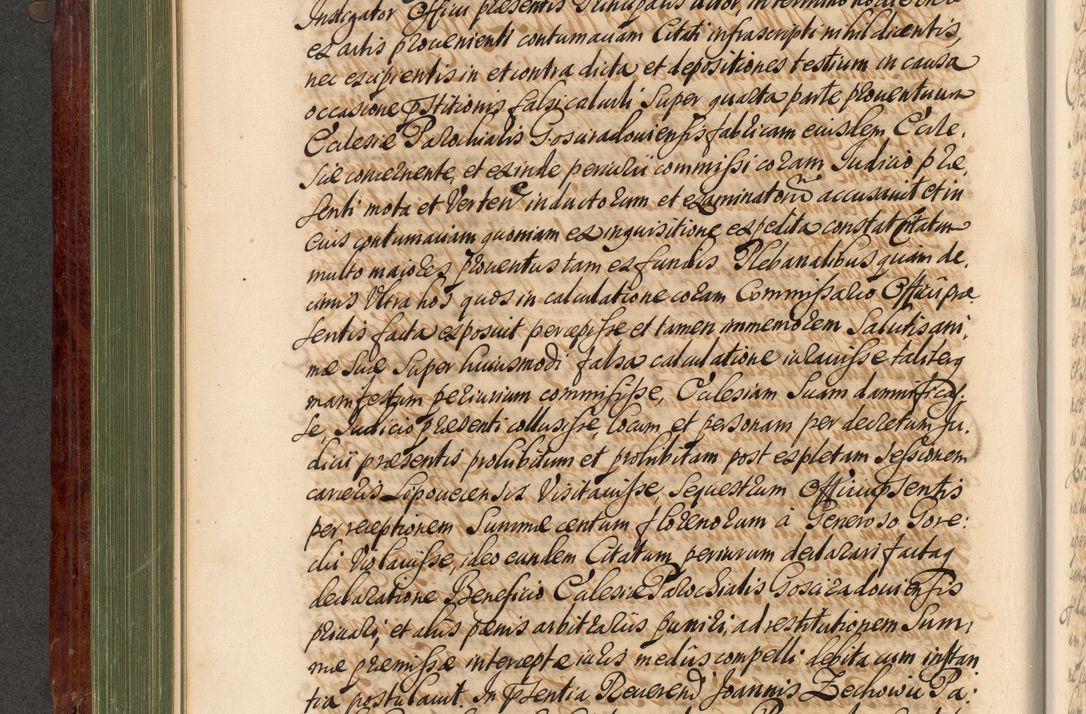 Instigator Officii præsentis Principalis Actor, in termino hodierno
ex actis provenienti contumaciam Citati infrascripti nihil dicentis,
nec excipientis in et contra dicta et depositiones testium in causa
occasione pstitionis falsi calculi Super quarta parte proventuum
Ecclesiæ Parochialis Gosciradoviensis fabricam eiusdem Eccle,
siæ concernente, et exinde periurii commissi coram Judicio præ,
senti mota et Verten inductorum et examinatorũ accusavit et in
eius contumaciam quoniam ex inquisitione expedita constat Citatum
multo maiores proventus tam ex fundis Plebanalibus quam de,
cimis Ultra hos quos in calculatione coram Commissario Officii præ
sentis facta exposuit percepisse et tamen immemorem Salutis ani,
mæ Suæ Super huiusmodi falsa calculatione iuravisse taliterq
manifestum periurium commisisse, Ecclesiam Suam damnifica,
se Judicio præsenti collusisse, locum et personam per decretum Ju,
dicii præsentis prohibitum et prohibitam post expletam Sessionem
carceris Lipovecensis Visitavisse, Sequestrum Officii psentis
per receptionem Summæ centum florenorum à Generoso Gore:
cki Violavisse, ideo eundem Citatum periurum declarari factaq
declaratione Beneficio Ecclesiæ Parochialis Gosciradoviensis
privari, et aliis pænis arbitrariis puniri, ad restitutionem Sum,
mæ præmissæ interceptæ iuris mediis compelli debita cum instan
tia postulavit. In pstentia Reverendi Joannis Zechowic Pa: